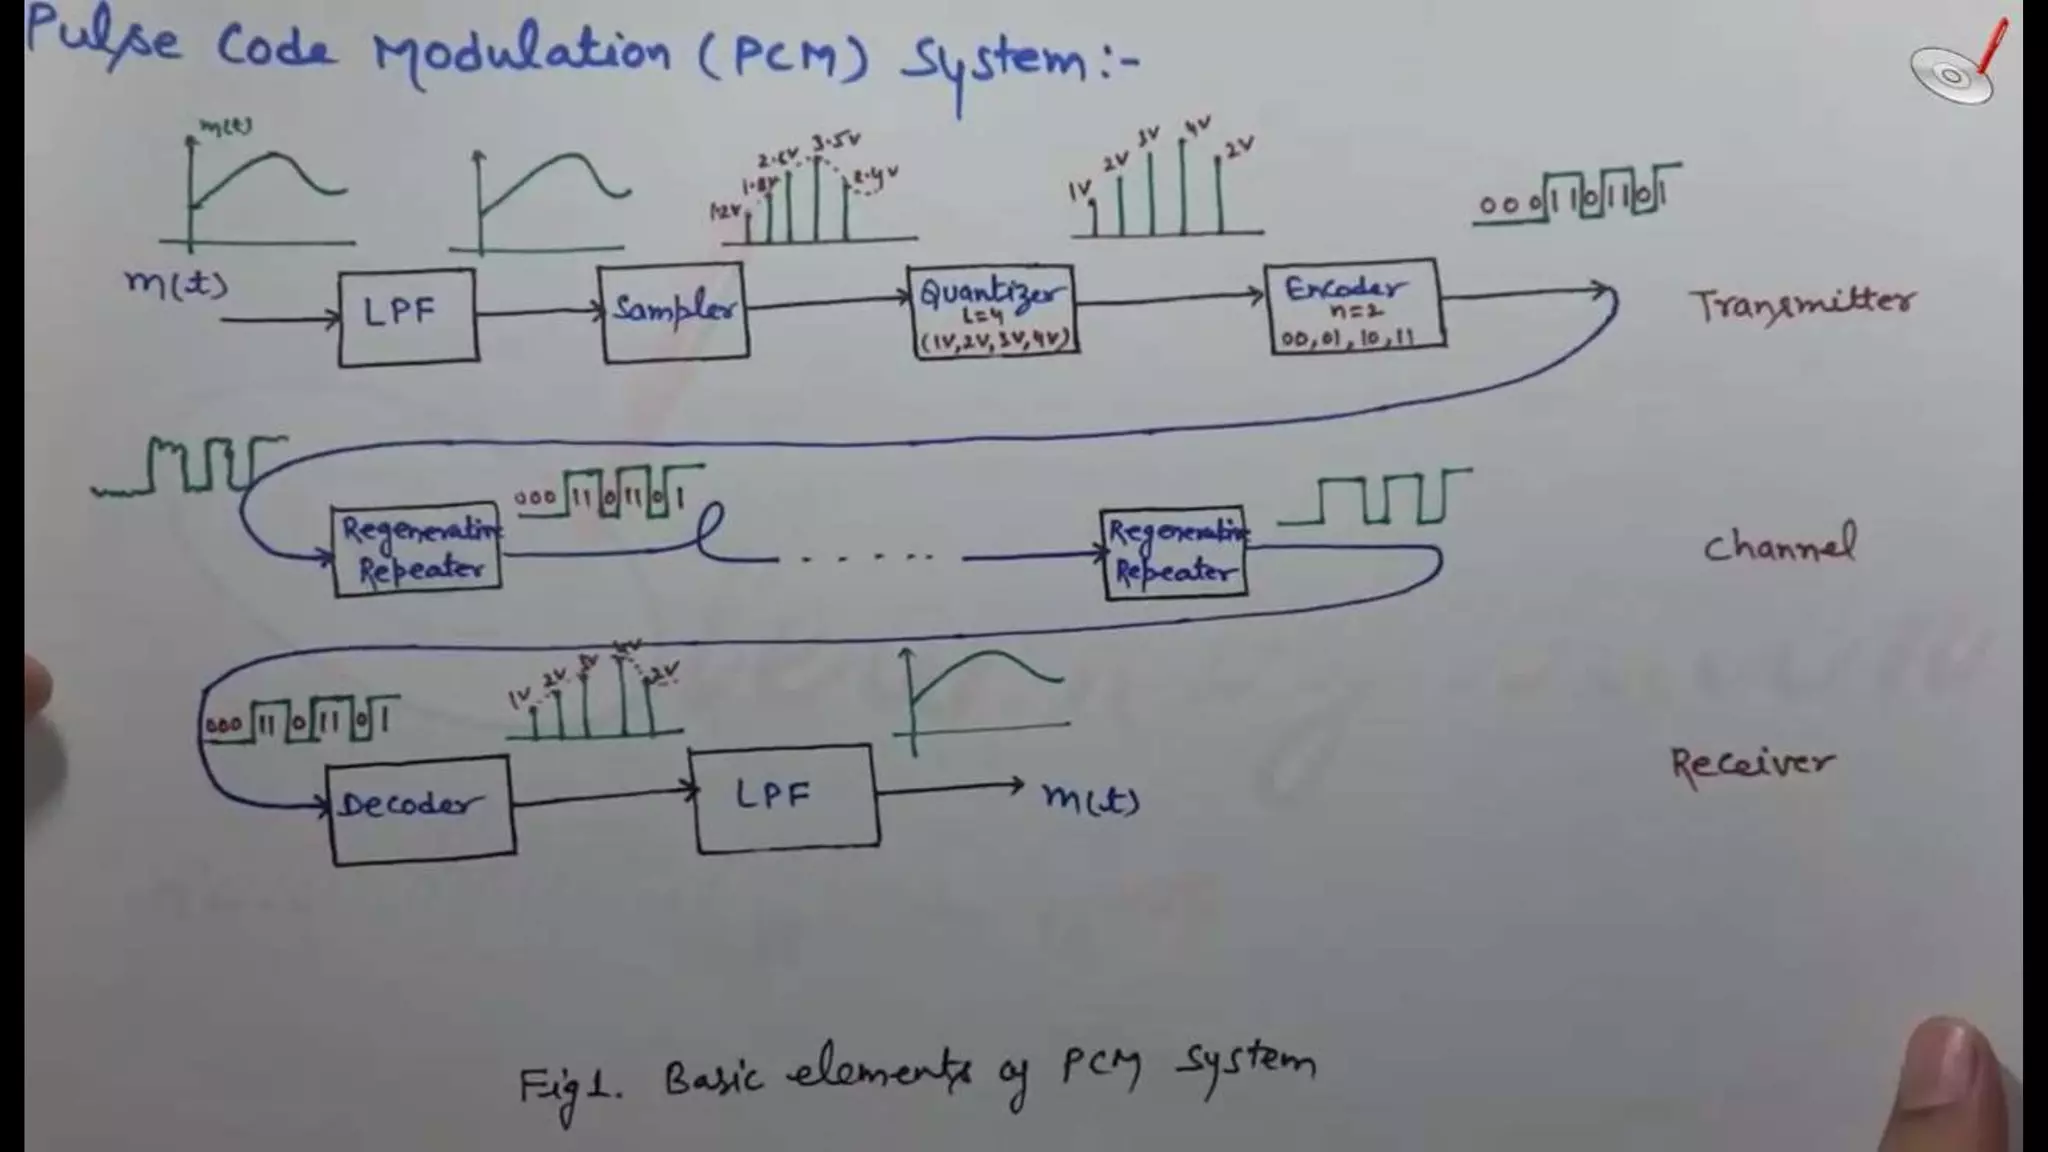 Pulse Code Modulation (PCM) System:-
m(t)
1.2V 1.8V 2.6V 3.5V 2.4V
1V 2V 3V 4V 2V
0 0 0 1 1 0 1 1 0 1
m(t)
LPF
Sampler
Quantizer
L=4
(1V,2V,3V,4V)
Encoder
n=2
00,01,10,11
Transmitter
000 11 0 11 0 1
Regenerative
Repeater
......
Regenerative
Repeater
Channel
000 11 0 11 0 1
1V 2V 3V 4V 2V
Decoder
LPF
m(t)
Receiver
Fig 1. Basic elements of PCM System